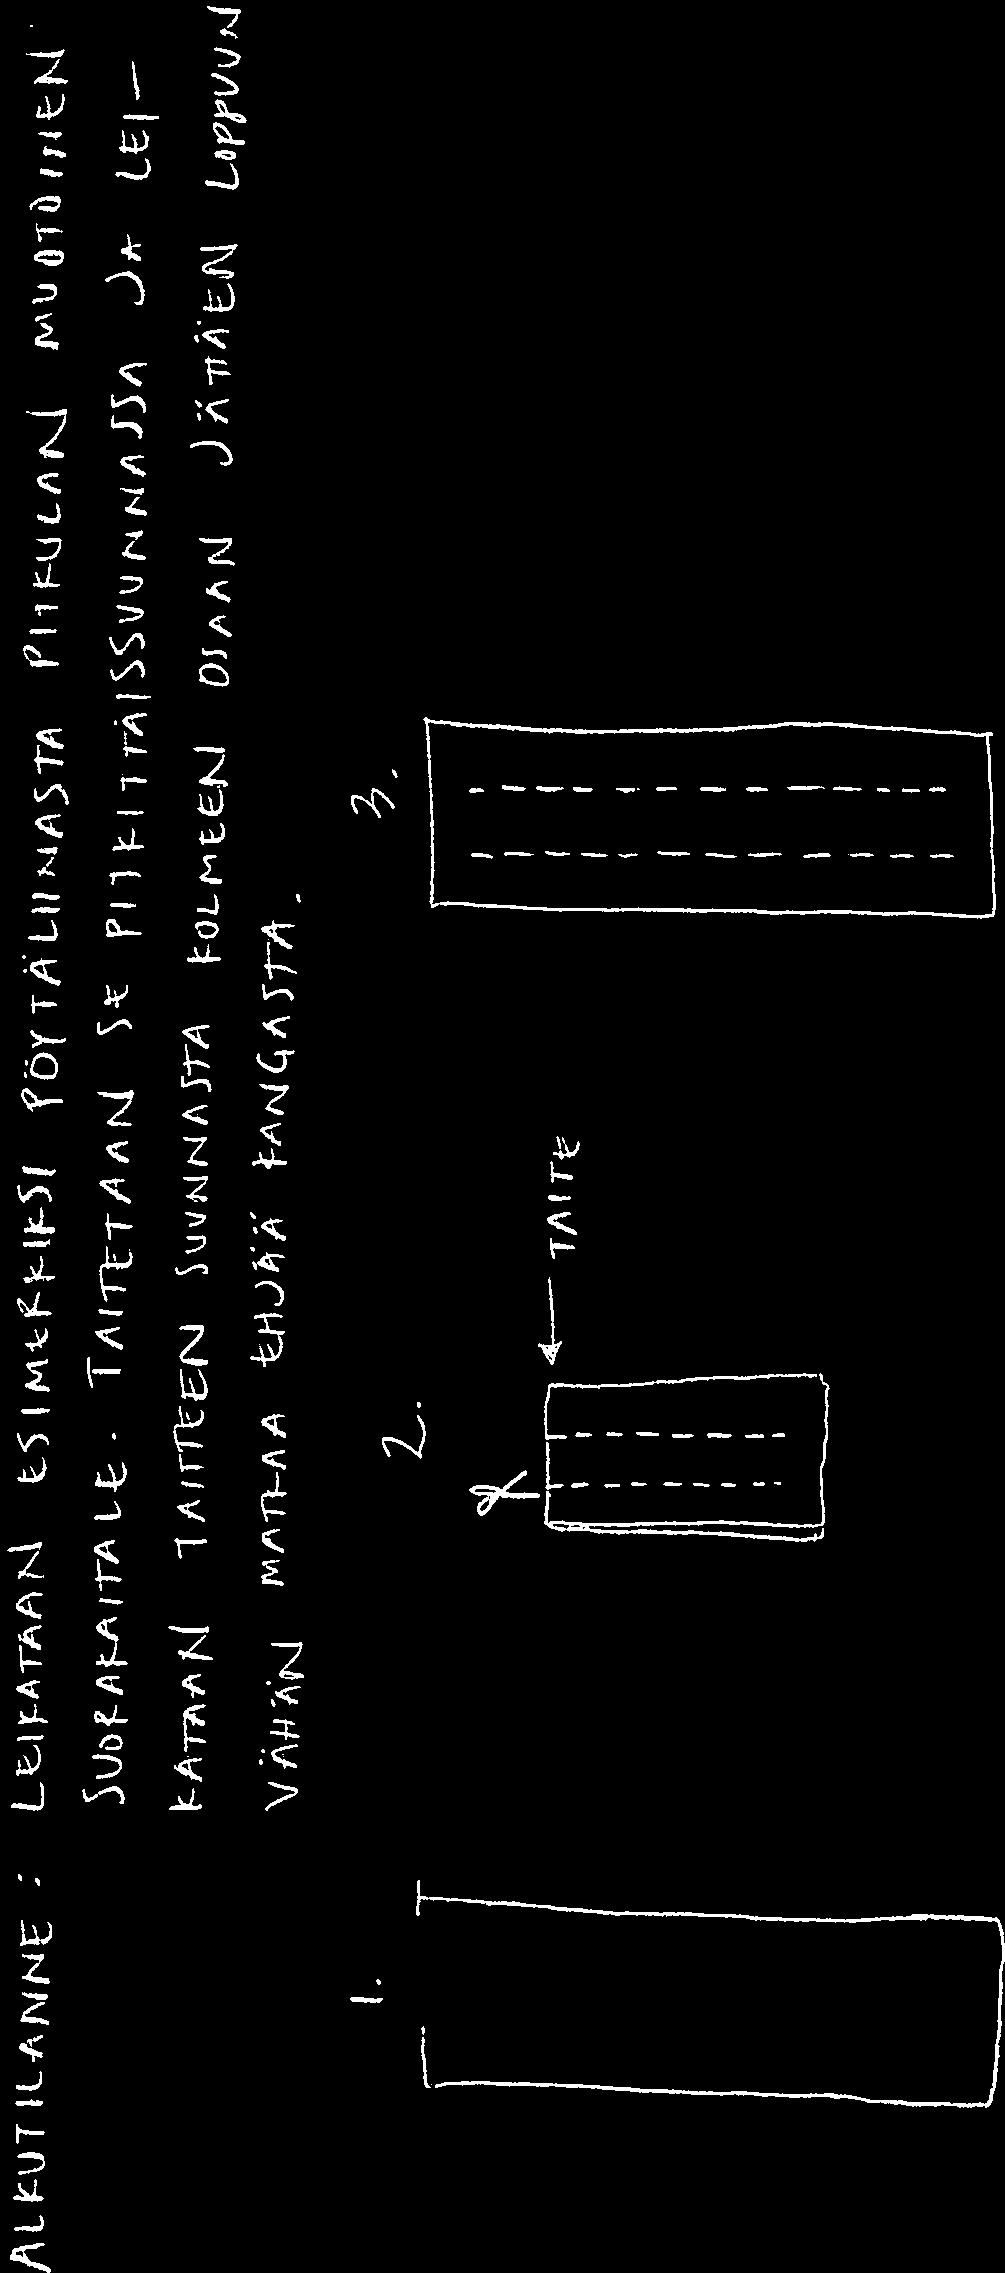 ALKUTILANNE: LEIKATAAN ESIMERKIKSI PÖYTÄLIINASTA PITKULAN MUOTOINEN
SUORAKAITALE. TAITETAAN SE PITKITTÄISSUUNNASSA JA LEI-
KATAAN TAITTEEN SUUNNASTA KOLMEEN OSAAN JÄTTÄEN LOPPUUN
VÄHÄN MATKAA EHJÄÄ KANGASTA.
1.
2.
3.
TAITE